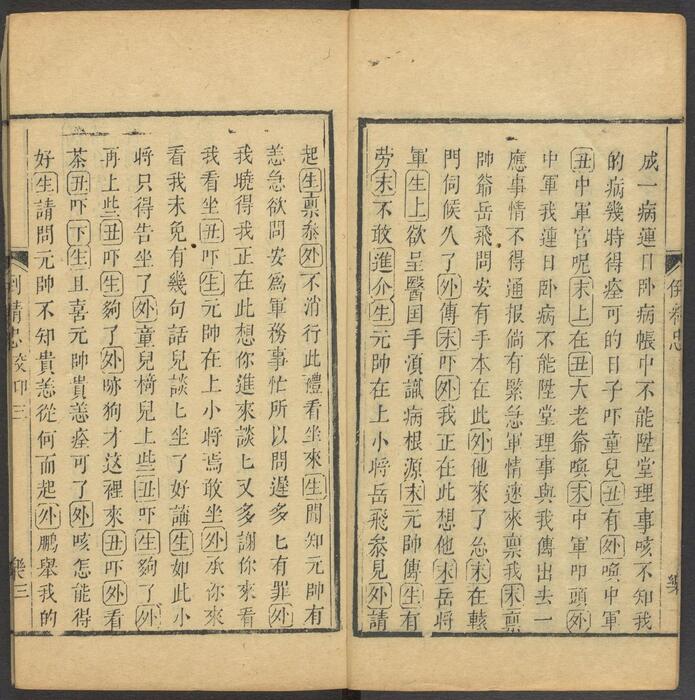 成一病連日卧病帳中不能陞堂理事咳不知我
的病幾時得痊可的日子吓童兒丑有外喚中軍
丑中軍官呢末上在丑大老爺喚末中軍叩頭外
中軍我連日卧病不能陞堂理事與我傳出去一
應事情不得通報倘有緊急軍情速來禀我末禀
帥爺岳飛問安有手本在此外他來了怎末在轅
門伺候久了外傳末吓外我正在此想他末岳將
軍生上欲呈醫国手湏識病根源末元帥傳生有
劳末不敢進介生元帥在上小將岳飛叅見外請
起生禀叅外不消行此禮看坐來生聞知元帥有
恙急欲問安爲軍務事忙所以問遲多匕有罪外
我曉得我正在此想你進來談匕又多謝你來看
我看坐丑吓生元帥在上小將焉敢坐外承你來
看我未免有幾句話兒談匕坐了好講生如此小
將只得告坐了外童兒椅兒上些丑吓生夠了外
再上些丑吓生夠了外哧狗才这裡來丑吓外看
茶丑吓下生且喜元帥貴恙痊可了外咳怎能得
好生請問元帥不知貴恙從何而起外鵬舉我的
精忠 交印 三
樂三